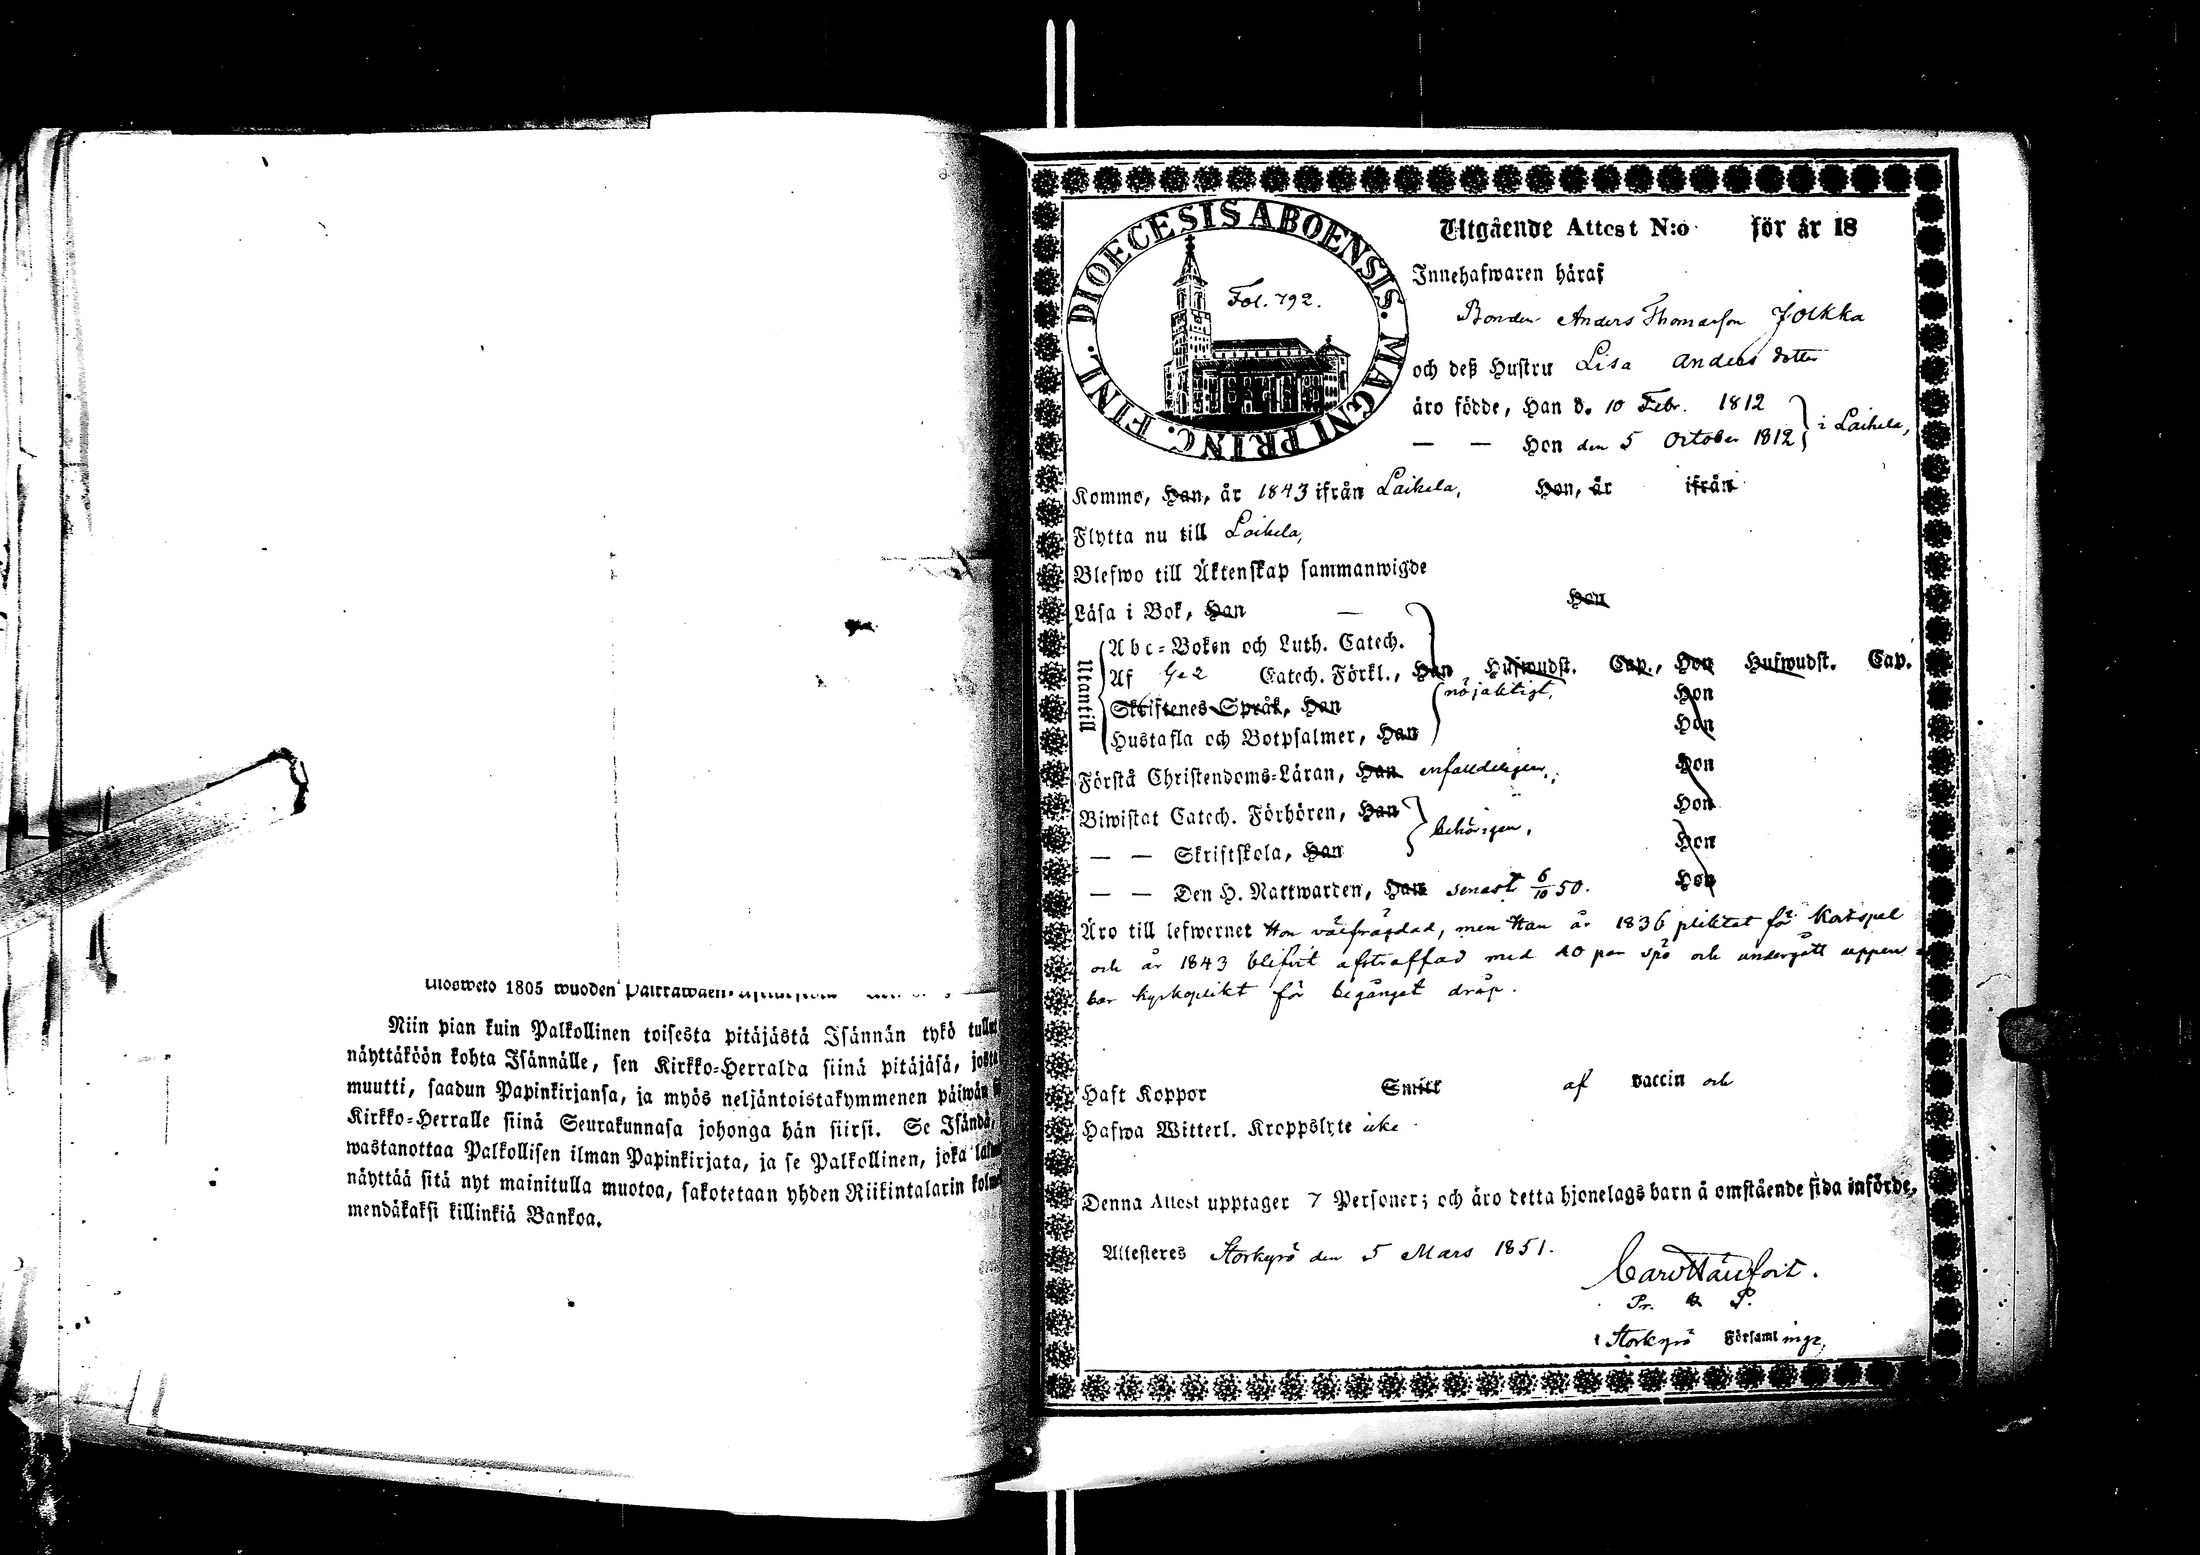 1805 wuoden
Niin pian kuin Palkollinen toisesta pitäjästä Isännän tykö tullut
näyttäköön kohta Isännälle, sen Kirkko-Herralda siinä pitäjäsä, josta
muutti, saadun Papinkirjansa, ja myös neljäntoistakymmenen päiwän
Kirkko-Herralle siinä Seurakunnasa johonga hän siirsi. Se Isändä,
wastanottaa Palkollisen ilman Papinkirjata, ja se Palkollinen, joka
näyttää sitä nyt mainitulla muotoa, sakotetaan yhden Riikintalarin
mendäkaksi killinkiä Bankoa.
DIOECESIS ABOENSIS. MAGNI PRINC. FINL.
Fol. 792.
Utgående Attest N:o för år 18
Innehafwaren häraf
Bonden Anders Thomasson Jolkka
och deß Hustru Lisa Anders dotter
äro födde, Han d. 10 Febr. 1812
— — Hon den 5 October 1812 i Laihela,
Kommo, Han, år 1843 ifrån Laihela, Hon, år ifrån
Flytta nu till Laihela,
Blefwo till Äktenskap sammanwigde
Läsa i Bok, Han — Hon
Utantill
Abc-Boken och Luth. Catech.
Af Catech. Förkl., Han Hufwudst. Cap., Hon Hufwudst. Cap.
nöjaktigt, Hon
Skriftenes Språk, Han
Hustafla och Botpsalmer, Han Hon
Förstå Christendoms-Läran, Han enfaldeligen, Hon
Biwistat Catech. Förhören, Han behörigen, Hon
— — Skriftskola, Han Hon
— — Den H. Nattwarden, Han senast 6/10 50. Hon
Äro till lefwernet Hon välfrägdad, men Han år 1836 pliktat för Kortspel
och år 1843 blifvit afstraffad med 40 par spö och undergått uppen-
bar kyrkoplikt för begånget dråp.
Haft Koppor Smitt af vaccin och
Hafwa Witterl. Kroppslyte icke
Denna Attest upptager 7 Personer; och äro detta hjonelags barn å omstående sida införde,
Attesteres Storkyrö den 5 Mars 1851.
Pr. & P.
i Storkyrö Församl inge,